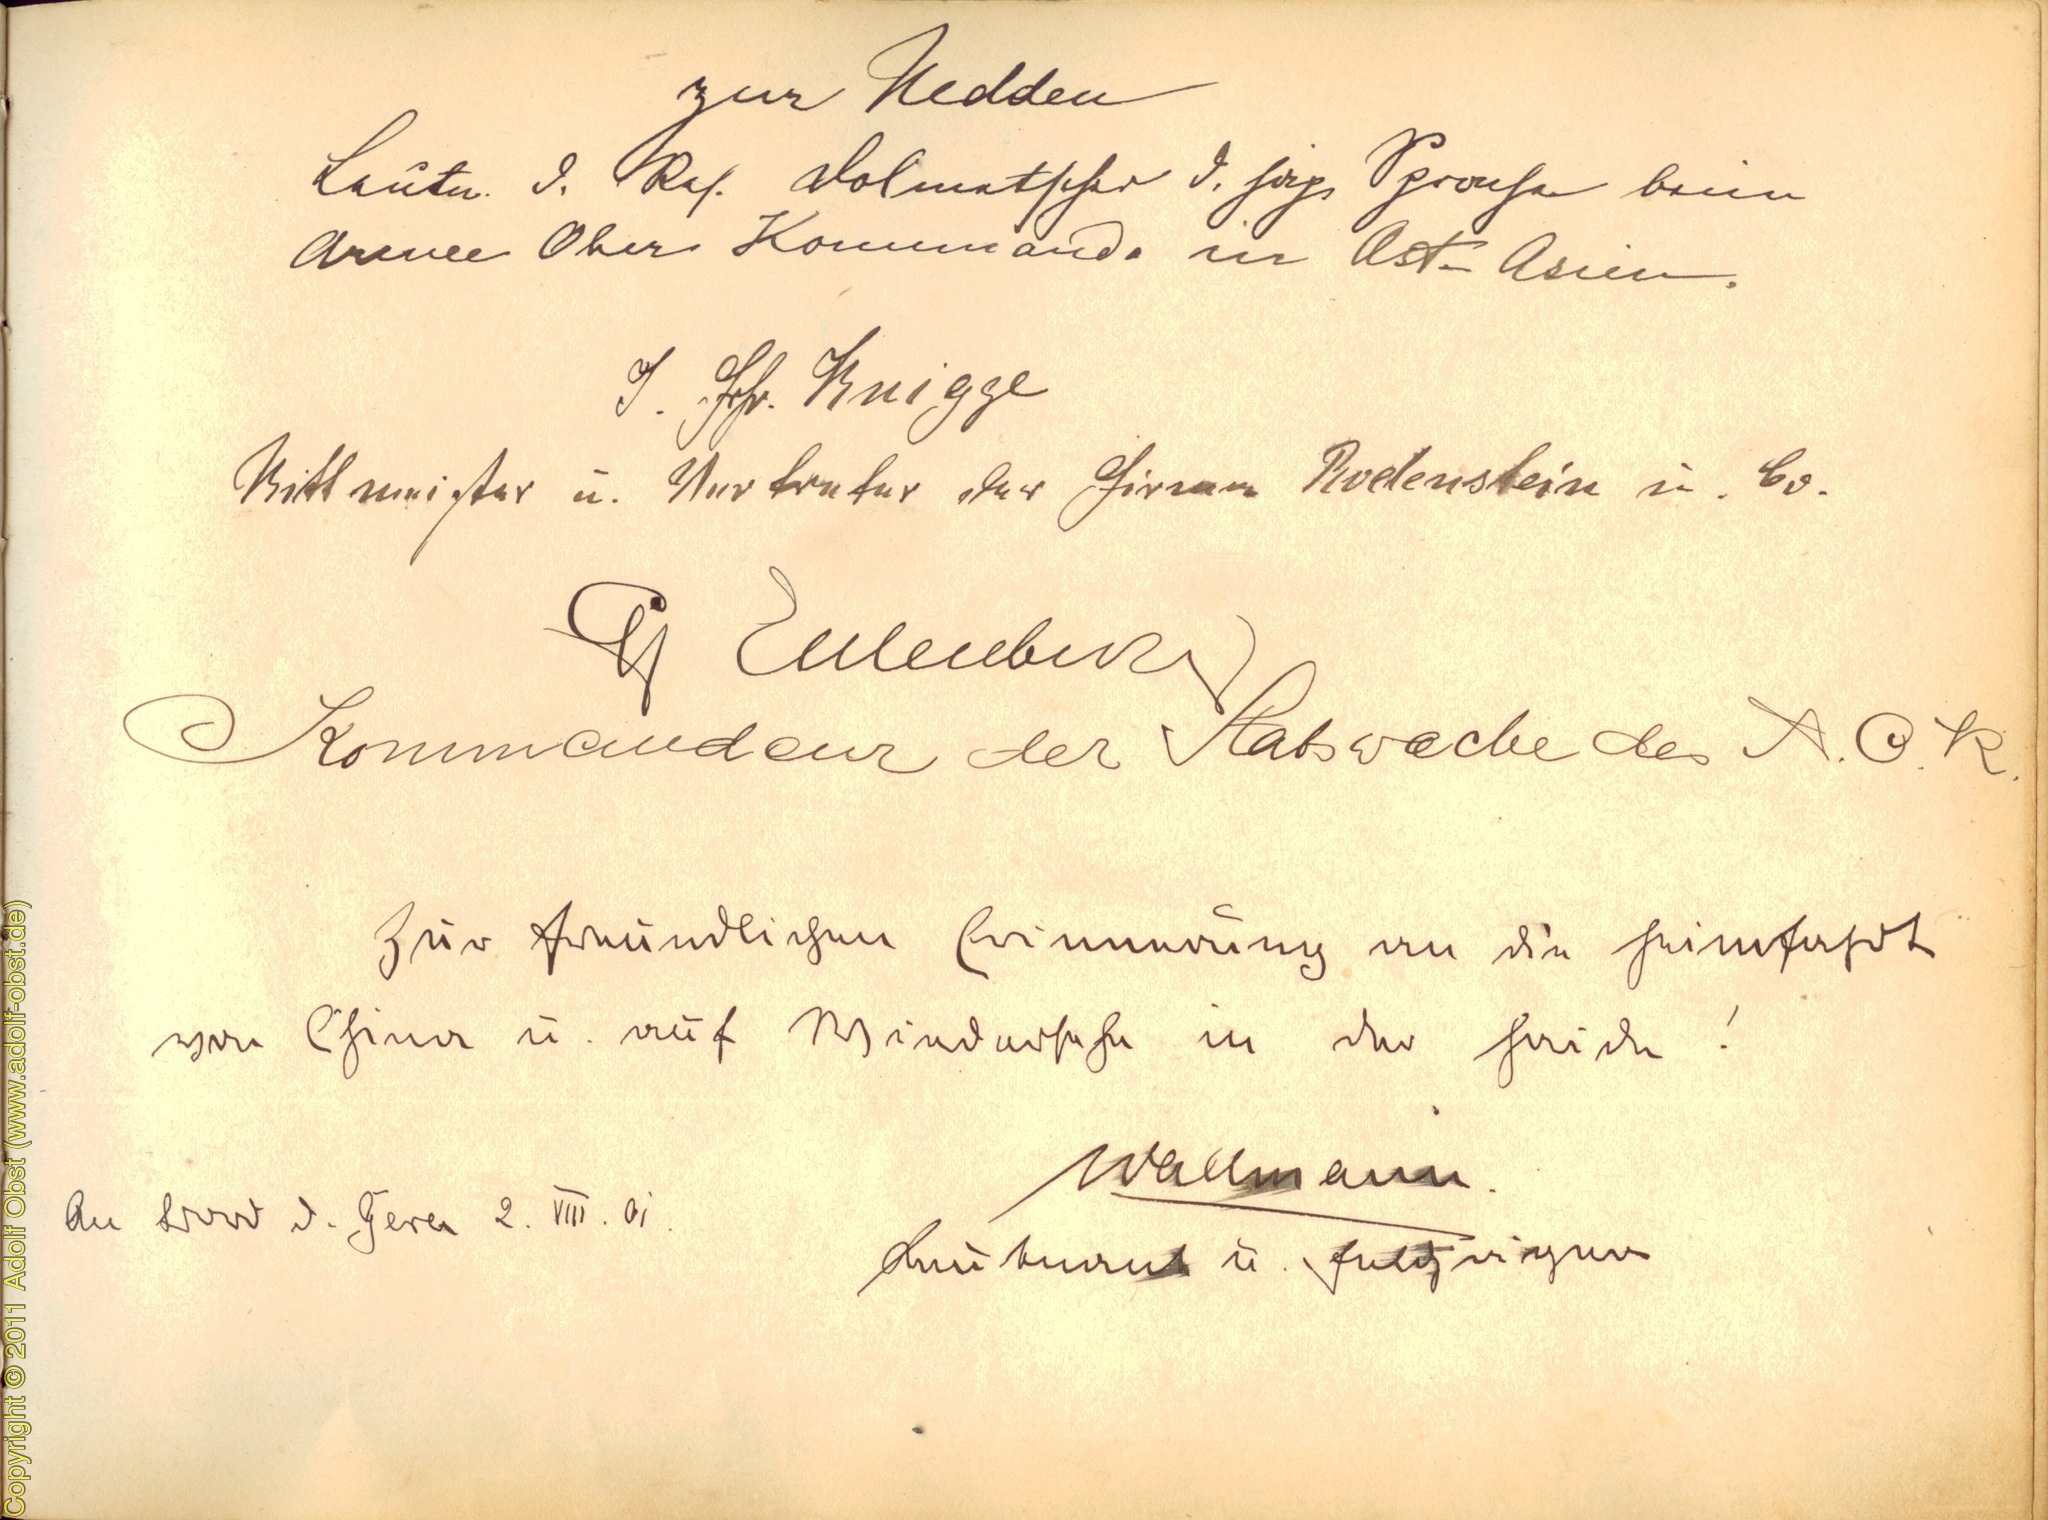 zur Nedden
Leutn. d. Res. Dolmetscher d. Sprache beim
Armee Ober Kommando in Ost-Asien.
Frhr. Knigge
Rittmeister u. Vertreter der Firma Rodenstein u. Co.
Gf Eulenburg
Kommandeur der Stabswache des A. O. K.
Zur freundlichen Erinnerung an die Heimfahrt
von China u. auf Wiedersehn in der Heide!
Wallmann.
An Bord d. Gera 2. VIII. 01.
Leutnant u. Feldjäger
Copyright © 2011 Adolf Obst (www.adolf-obst.de)